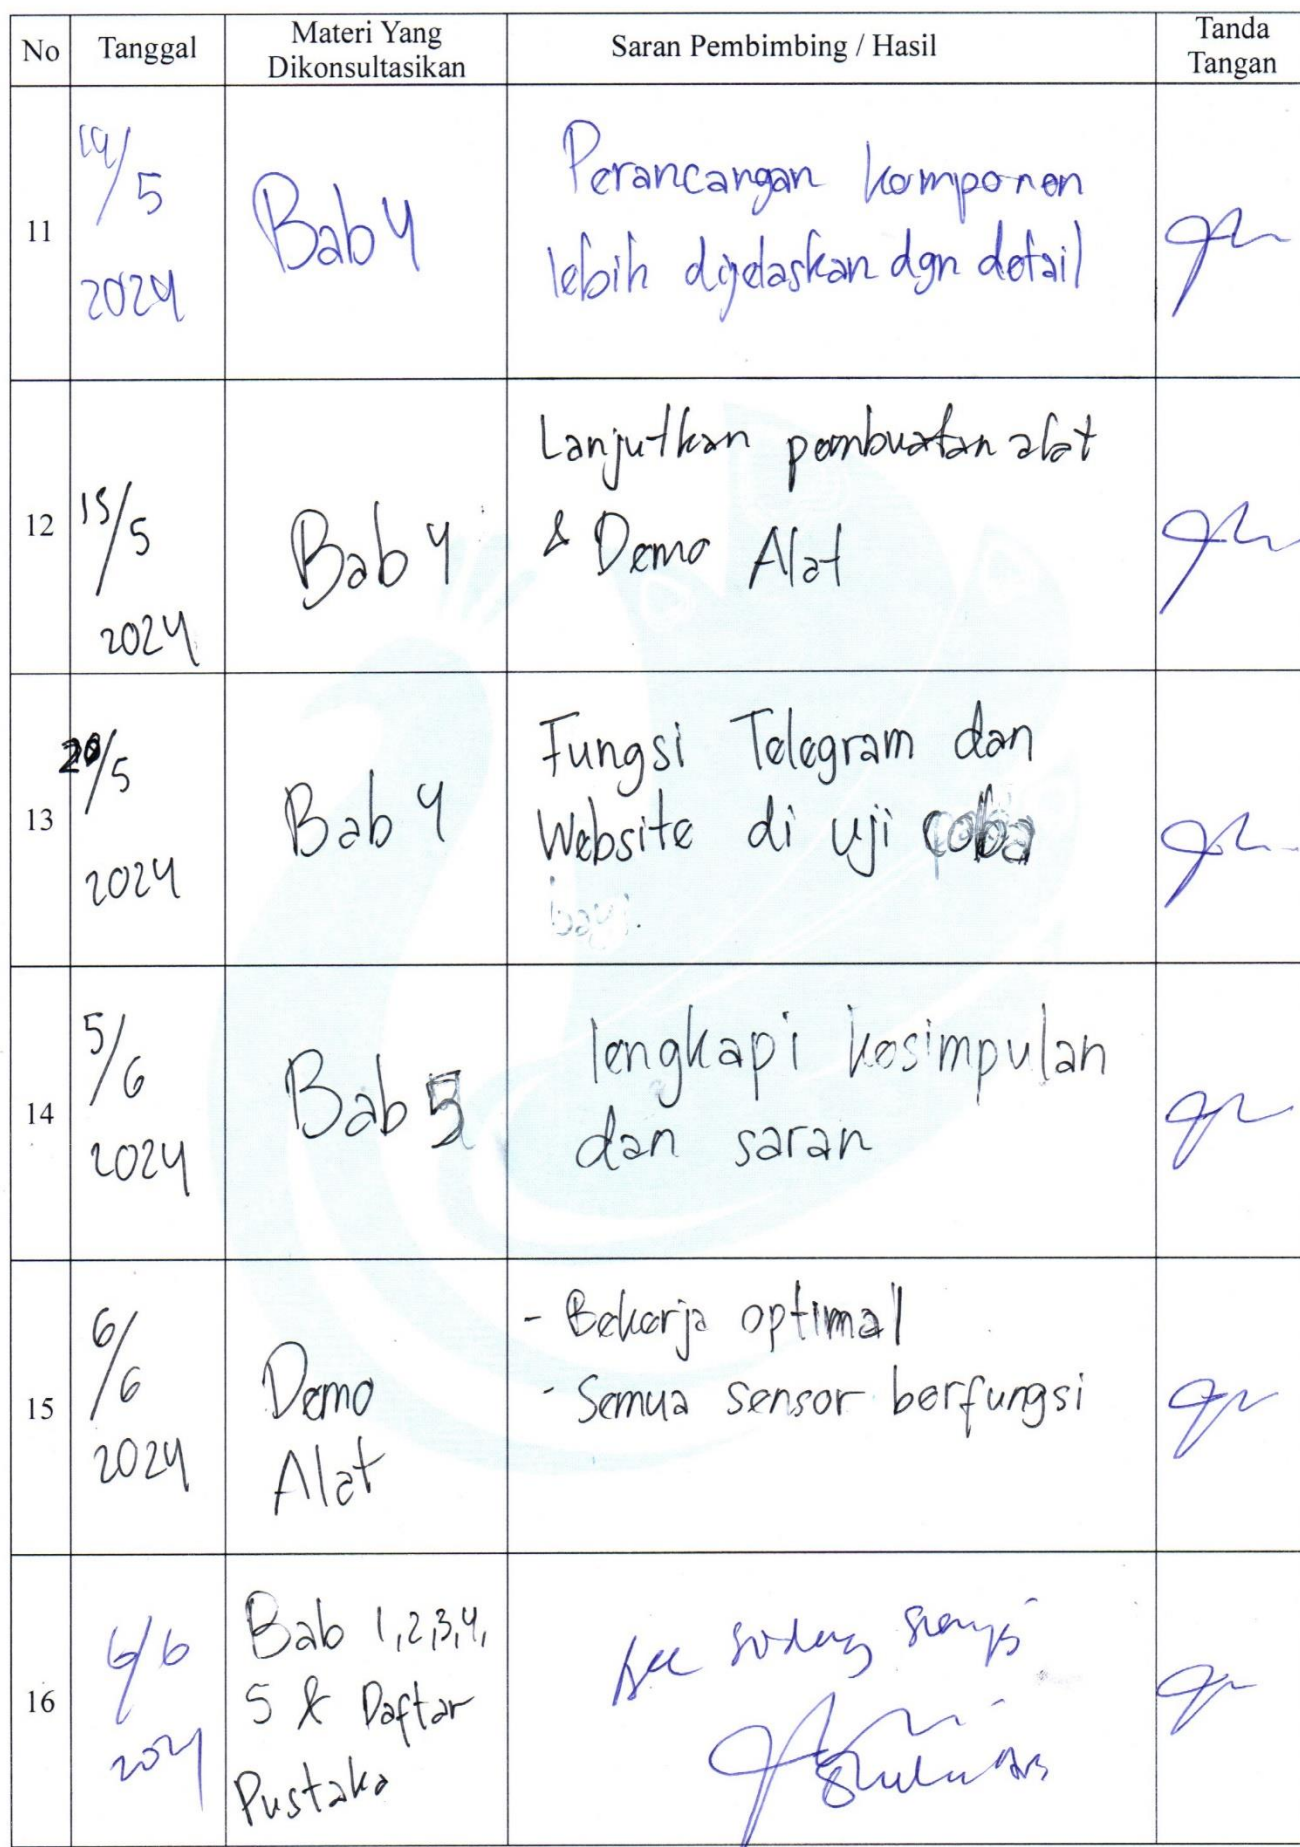 No Tanggal Materi Yang Dikonsultasikan Saran Pembimbing / Hasil Tanda Tangan
11
14/5
2024
Bab 4
Perancangan komponen
lebih dijelaskan dgn detail
12
15/5
2024
Bab 4
Lanjutkan pembuatan alat
& Demo Alat
13
20/5
2024
Bab 4
Fungsi Telegram dan
Website di uji coba
14
5/6
2024
Bab 5
lengkapi kesimpulan
dan saran
15
6/6
2024
Demo
Alat
- Bekerja optimal
- Semua sensor berfungsi
16
6/6
2024
Bab 1,2,3,4,
5 & Daftar
Pustaka
Acc sidang